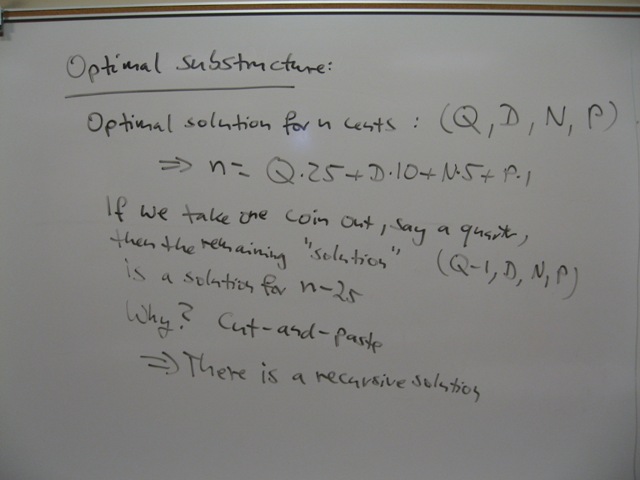 Optimal substructure:
Optimal solution for n cents: (Q, D, N, P)
⇒ n = Q·25+D·10+N·5+P·1
If we take one coin out, say a quarter,
then the remaining "solution" (Q-1, D, N, P)
is a solution for n-25
Why? Cut-and-paste
⇒ There is a recursive solution